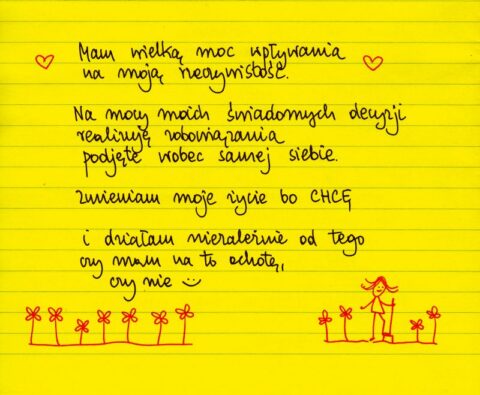 Mam wielką moc wpływania
na moją rzeczywistość.
Na mocy moich świadomych decyzji
realizuję zobowiązania
podjęte wobec samej siebie.
Zmieniam moje życie bo CHCĘ
i działam niezależnie od tego
czy mam na to ochotę,
czy nie